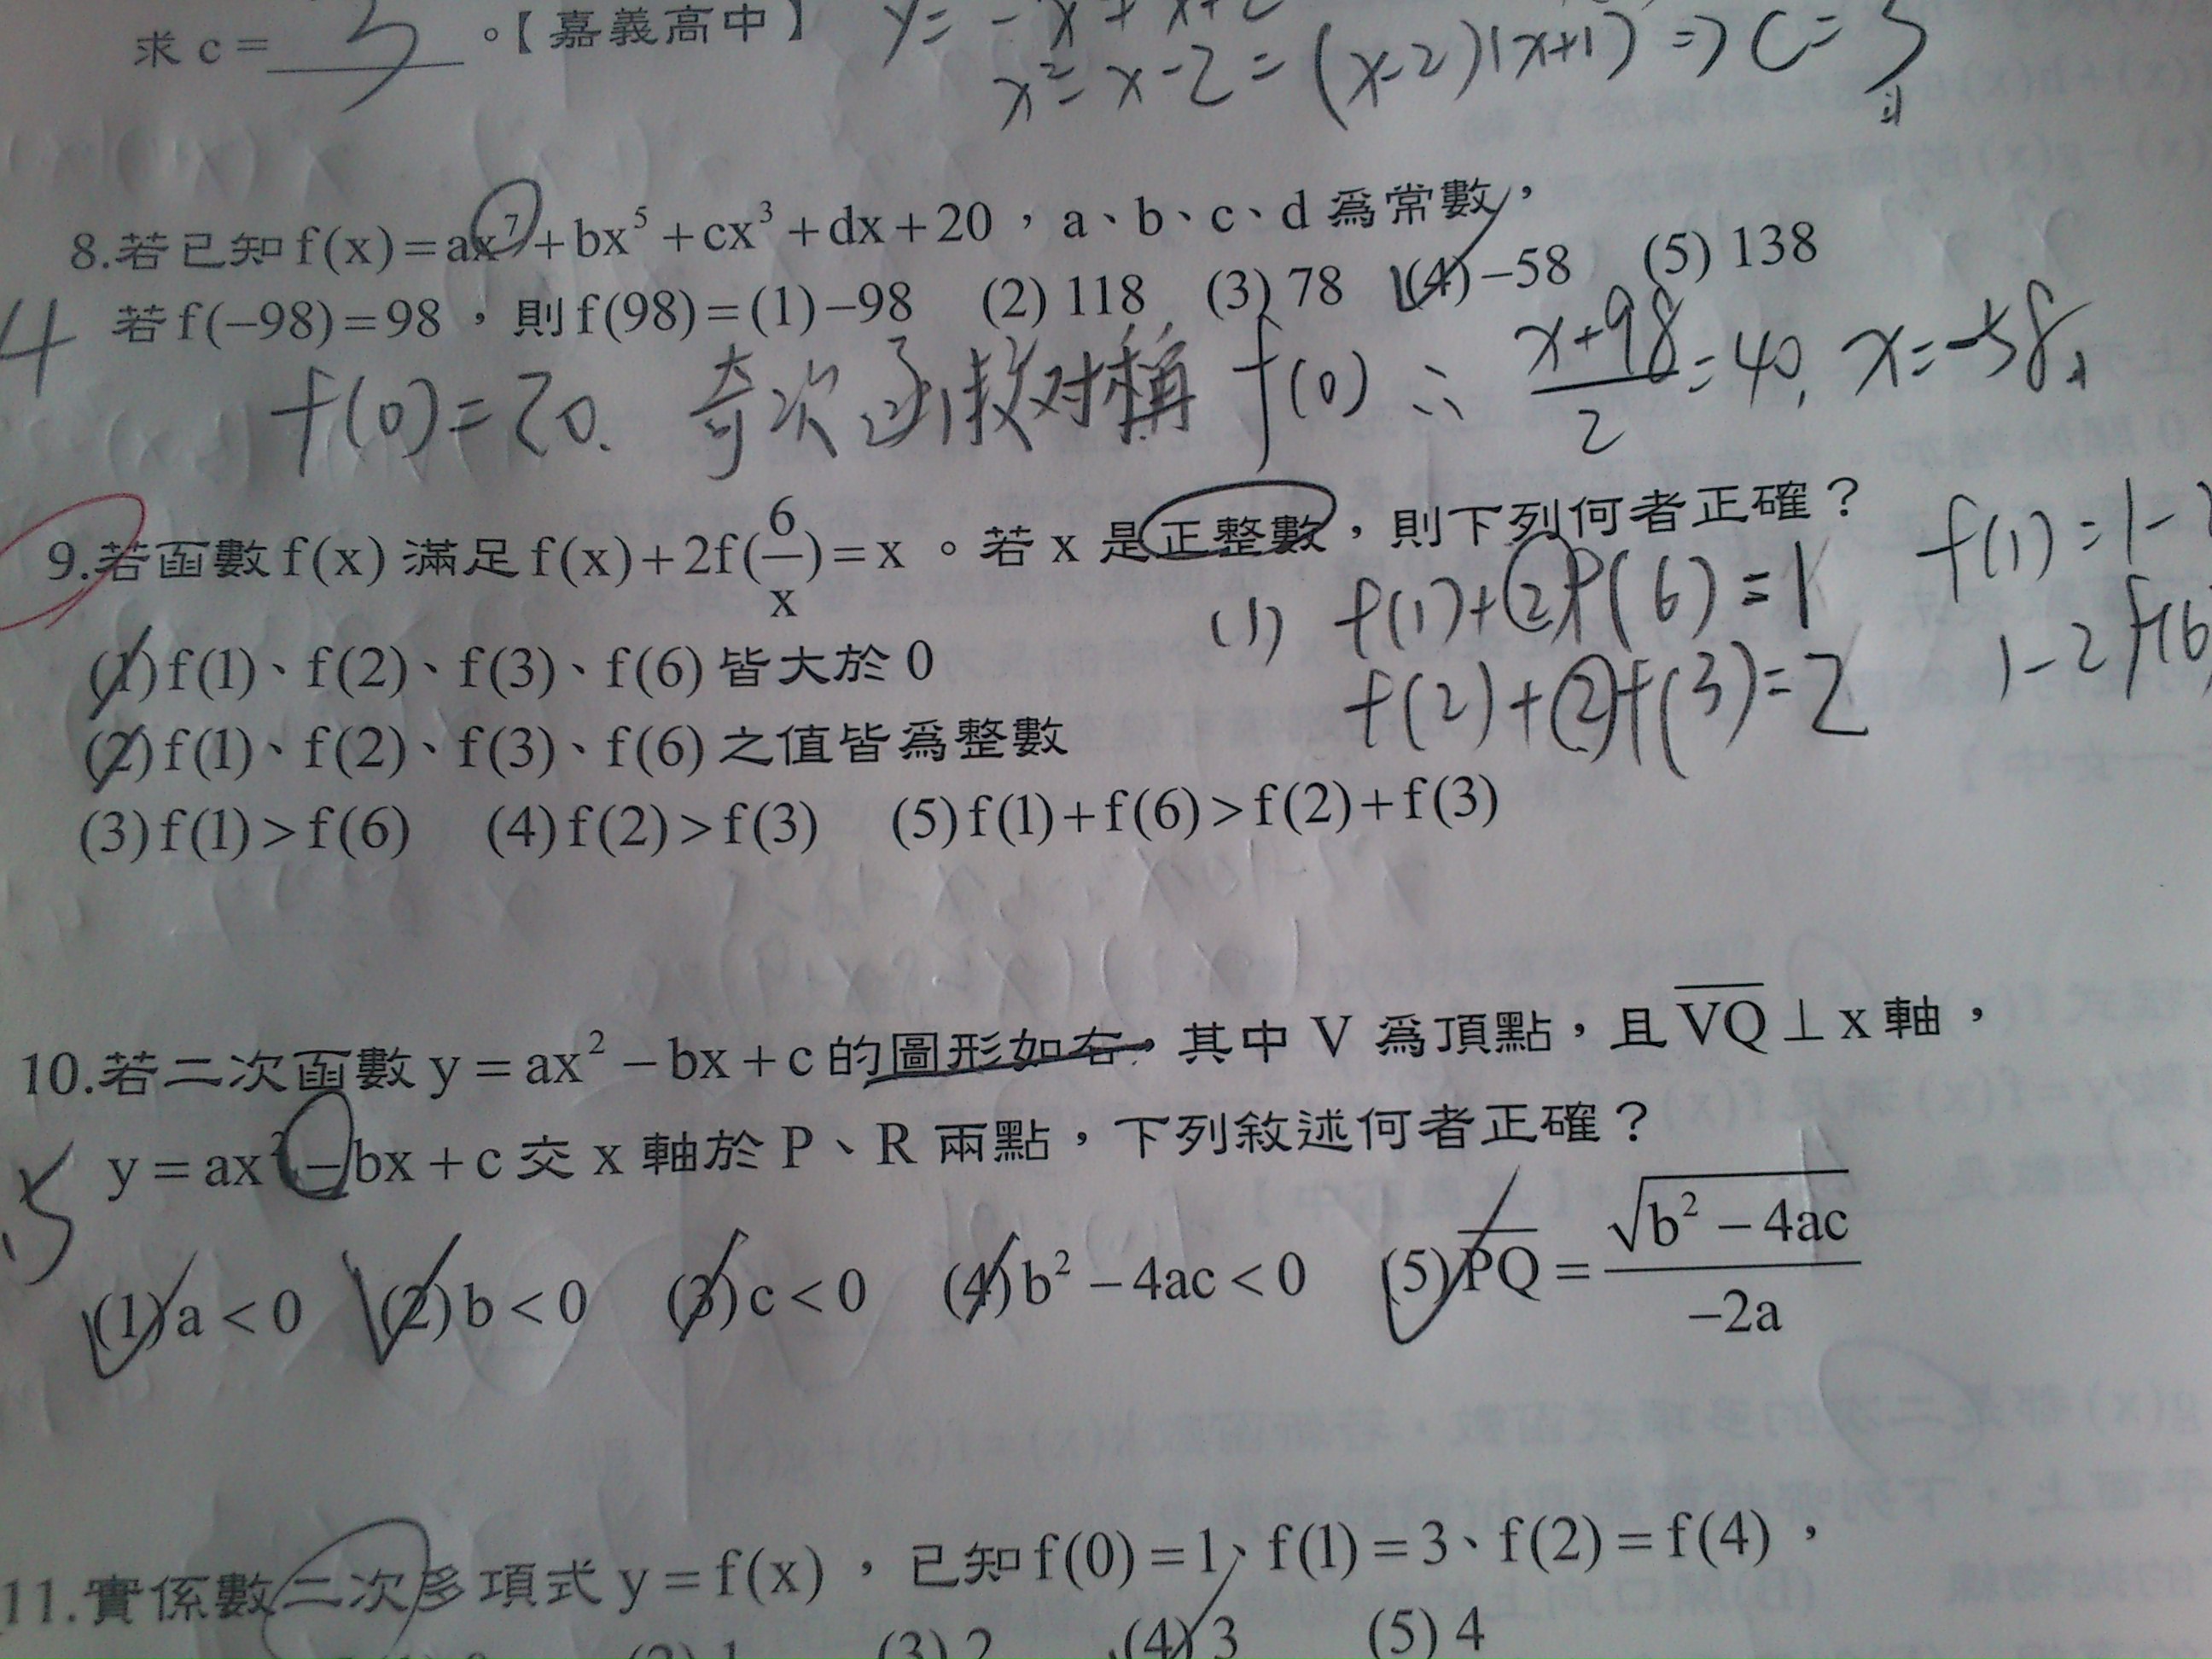 y = -x + x+2
求 c = 3 。【嘉義高中】
x² - x - 2 = (x-2)(x+1) => c = 3
8.若已知 f(x) = ax⁷ + bx⁵ + cx³ + dx + 20 ，a、b、c、d 為常數，
4 若 f(−98) = 98 ，則 f(98) = (1) −98 (2) 118 (3) 78 (4) −58 (5) 138
f(0) = 20. 奇次函数对稱 f(0) ∴ (x+98)/2 = 40, x = -58
9.若函數 f(x) 滿足 f(x) + 2f(6/x) = x 。若 x 是正整數，則下列何者正確？
(1) f(1) + 2f(6) = 1 f(1) = 1 -
(1) f(1)、f(2)、f(3)、f(6) 皆大於 0
f(2) + 2f(3) = 2 1 - 2f(6)
(2) f(1)、f(2)、f(3)、f(6) 之值皆為整數
(3) f(1) > f(6) (4) f(2) > f(3) (5) f(1) + f(6) > f(2) + f(3)
10.若二次函數 y = ax² − bx + c 的圖形如右，其中 V 為頂點，且 VQ ⊥ x 軸，
y = ax² − bx + c 交 x 軸於 P、R 兩點，下列敘述何者正確？
(1) a < 0 (2) b < 0 (3) c < 0 (4) b² − 4ac < 0 (5) PQ = √(b² − 4ac)/(−2a)
11.實係數二次多項式 y = f(x) ，已知 f(0) = 1、f(1) = 3、f(2) = f(4) ，
(3) 2 (4) 3 (5) 4